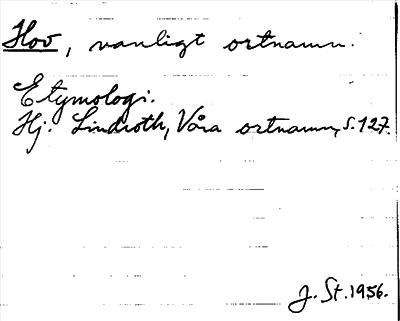 Hov, vanligt ortnamn.
Etymologi.
Hj. Lindroth, Våra ortnamn, s. 127.
J. St. 1956.